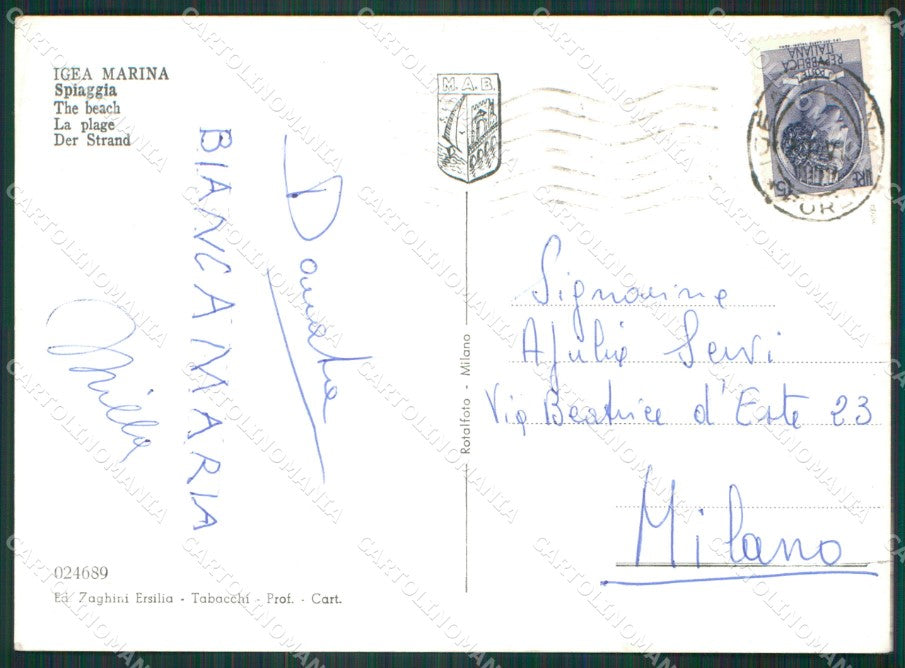 IGEA MARINA
Spiaggia
The beach
La plage
Der Strand
M.A.B.
REPVBBLICA
ITALIANA
LIRE
Donata
BIANCA MARIA
Milla
Signorina
Giulia Servi
Via Beatrice d'Este 23
Milano
Rotalfoto - Milano
024689
Ed. Zaghini Ersilia - Tabacchi - Prof. - Cart.
CARTOLINOMANIA